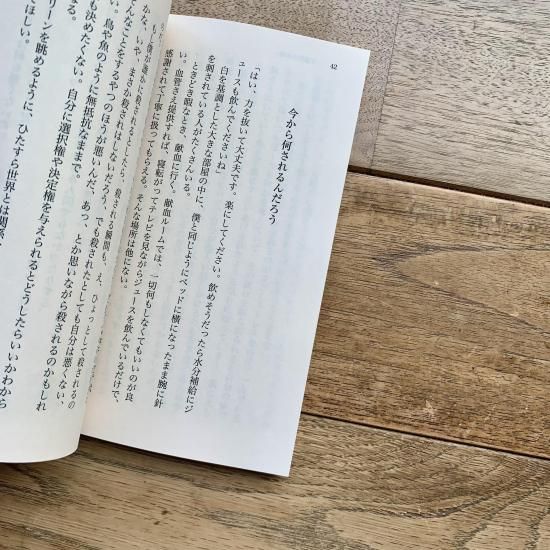 42
今から何されるんだろう
「はい、力を抜いて大丈夫です。楽にしてください。飲めそうだったら水分補給にジ
ュースも飲んでくださいね」
白を基調とした大きな部屋の中に、僕と同じようにベッドに横になったまま腕に針
を刺されている人がたくさんいる。
ときどき暇なとき、献血に行く。献血ルームでは、一切何もしなくてもいいのが良
い。血管さえ提供すれば、寝転がってテレビを見ながらジュースを飲んでいるだけで、
感謝されて丁寧に扱ってもらえる。そんな場所は他にない。
もし僕が誰かに殺されるとしたら、殺される瞬間も、え、ひょっとして殺されるの
かな、いや、まさか殺されはしないだろう、でも殺されたとしても自分は悪くない、
そんなことをするやつのほうが悪いんだ、あっ、とか思いながら殺されるのかもしれ
ない。鳥や魚のように無抵抗なままで。
も決めたくない。自分に選択権や決定権を与えられるとどうしたらいいかわから
なる。
リーンを眺めるように、ひたすら世界とは関係
てほしい。